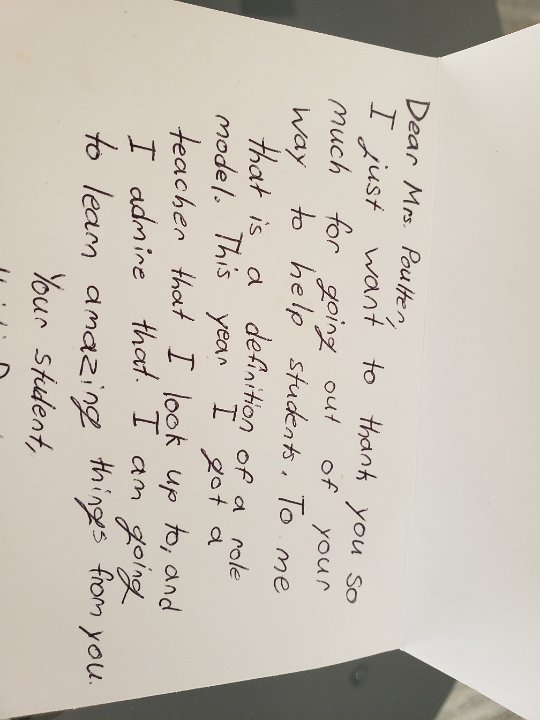 Dear Mrs. Poulter,
I just want to thank you so
much for going out of your
way to help students. To me
that is a definition of a role
model. This year I got a
teacher that I look up to, and
I admire that. I am going
to learn amazing things from you.
Your student,